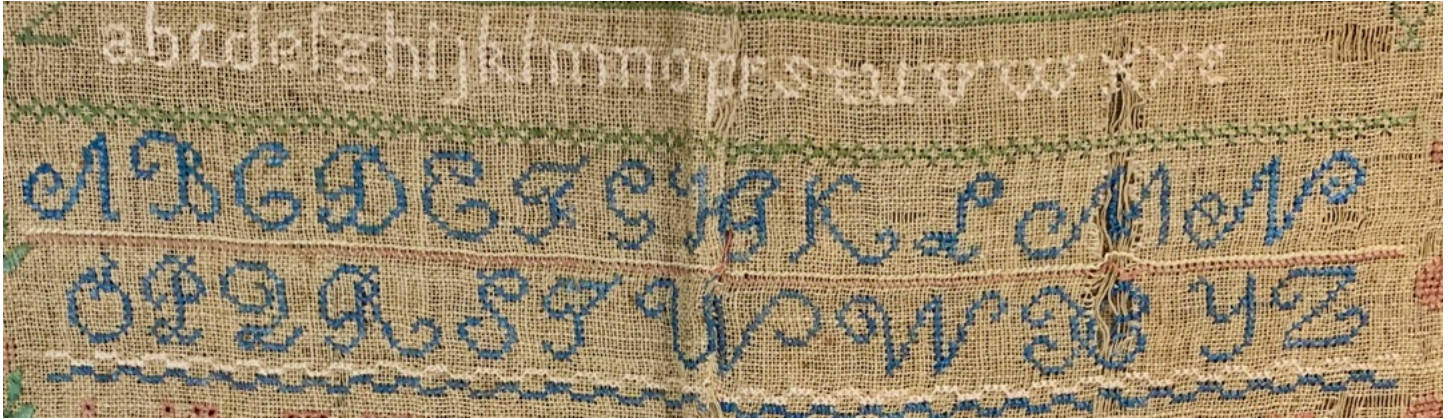 abcdefghijklmnoprstuvwxyz
ABCDEFGHKLMN
OPQRSTUWXYZ